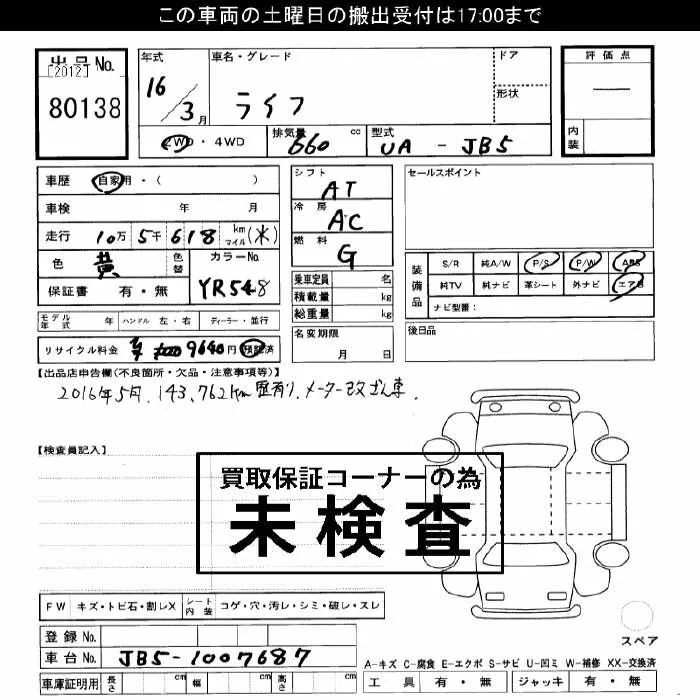 この車両の土曜日の搬出受付は17:00まで
出品No.
[2012]
80138
年式 16/3月
車名・グレード ライフ
ドア
形状
評価点
―
内装
2WD・4WD
排気量 660 cc
型式 UA - JB5
車歴 自家用・( )
車検 年 月
走行 10万5千618 km マイル (米)
色 黄
色替
カラーNo. YR548
保証書 有・無
シフト AT
冷房 AC
燃料 G
乗車定員 名
積載量 kg
総重量 kg
セールスポイント
装備品
S/R 純A/W P/S P/W ABS
純TV 純ナビ 革シート 外ナビ エアB
ナビ型番:
モデル年式 年 ハンドル 左・右 ディーラー・並行
名変期限 月 日
後日品
リサイクル料金 9640円 預託済
【出品店申告欄(不良箇所・欠品・注意事項等)】
2016年5月.143,762km歴有り.メーター改ざん車.
【検査員記入】
買取保証コーナーの為
未検査
FW キズ・トビ石・割レX シート内装 コゲ・穴・汚レ・シミ・破レ・スレ
スペア
登録No.
車台No. JB5-1007687
A-キズ C-腐食 E-エクボ S-サビ U-凹ミ W-補修 XX-交換済
車庫証明用 長さ cm 幅 cm 高さ cm
工具 有・無 ジャッキ 有・無